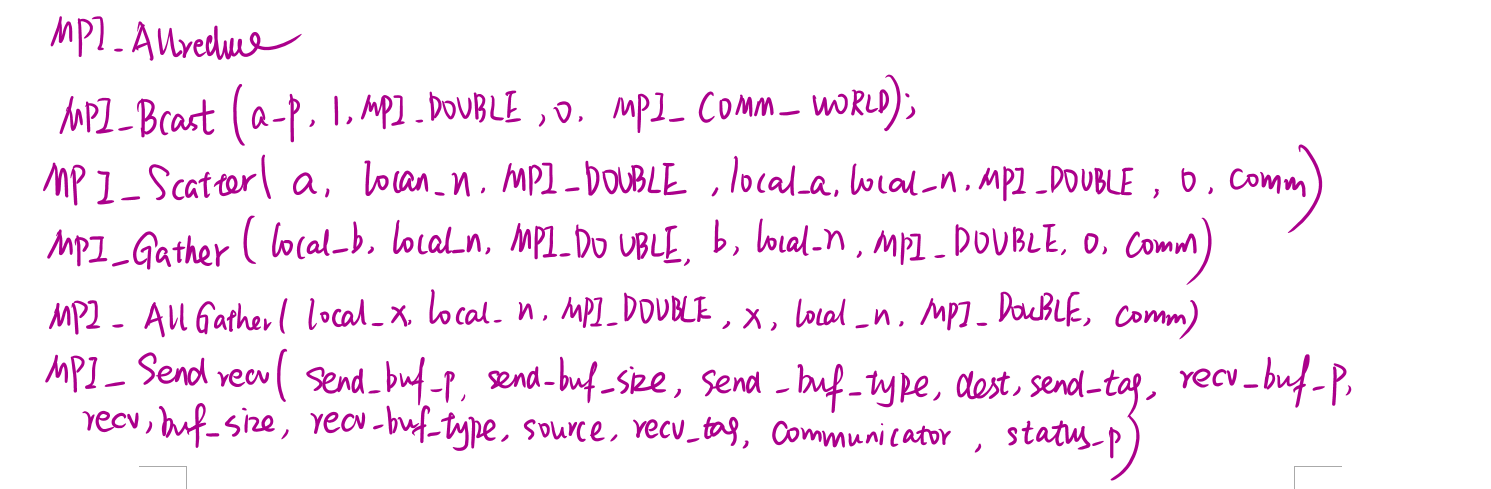 MPI_Allreduce
MPI_Bcast (a_p, 1, MPI_DOUBLE, 0, MPI_COMM_WORLD);
MPI_Scatter( a, locan_n, MPI_DOUBLE, local_a, local_n, MPI_DOUBLE, 0, comm)
MPI_Gather ( local_b, local_n, MPI_DOUBLE, b, local_n, MPI_DOUBLE, 0, comm)
MPI_AllGather( local_x, local_n, MPI_DOUBLE, x, local_n, MPI_DOUBLE, comm)
MPI_Sendrecv( send_buf_p, send_buf_size, send_buf_type, dest, send_tag, recv_buf_p,
recv,buf_size, recv_buf_type, source, recv_tag, communicator, status_p)